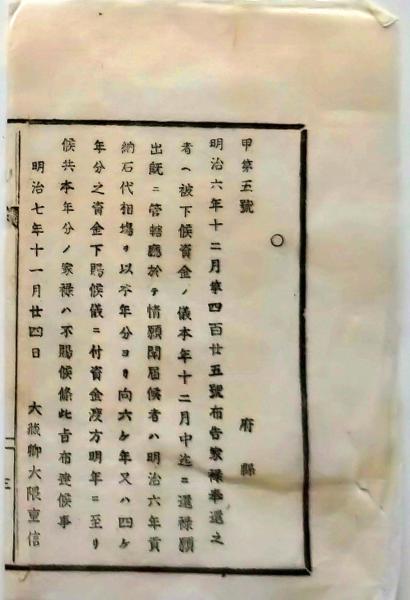 甲第五號
府縣
明治六年十二月第四百廿五號布告家祿奉還之
者ヘ被下候資金ノ儀本年十二月中迄ニ還祿願
出既ニ管轄廳於テ情願聞届候者ハ明治六年貢
納石代相場ヲ以本年分ヨリ向六ケ年又ハ四ケ
年分之資金下賜候儀ニ付資金渡方明年ニ至リ
候共本年分ノ家祿ハ不賜候條此旨布達候事
明治七年十一月廿四日 大藏卿大隈重信